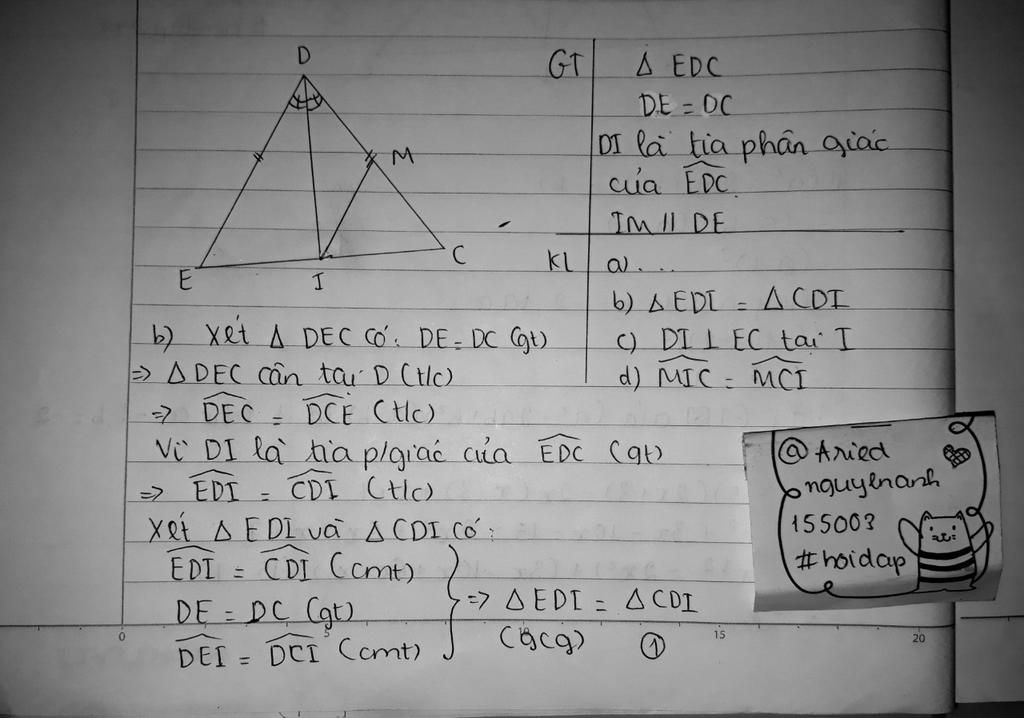 D
M
E
I
C
GT
Δ EDC
DE = DC
DI là tia phân giác
của \widehat{EDC}
IM // DE
KL
a)....
b) Δ EDI = Δ CDI
c) DI ⊥ EC tại I
d) \widehat{MIC} = \widehat{MCI}
b) Xét Δ DEC có: DE = DC (gt)
=> Δ DEC cân tại D (t/c)
=> \widehat{DEC} = \widehat{DCE} (t/c)
Vì DI là tia p/giác của \widehat{EDC} (gt)
=> \widehat{EDI} = \widehat{CDI} (t/c)
Xét Δ EDI và Δ CDI có:
\widehat{EDI} = \widehat{CDI} (cmt)
DE = DC (gt)
\widehat{DEI} = \widehat{DCI} (cmt)
=> Δ EDI = Δ CDI
(gcg) ①
@Aried
nguyenanh
155003
#hoidap
0
5
10
15
20